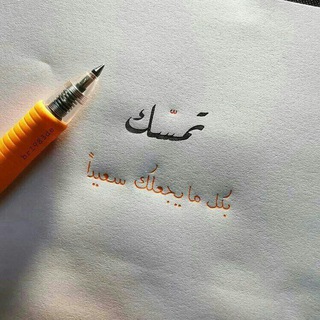 تمسّك
بكل ما يجعلك سعيداً